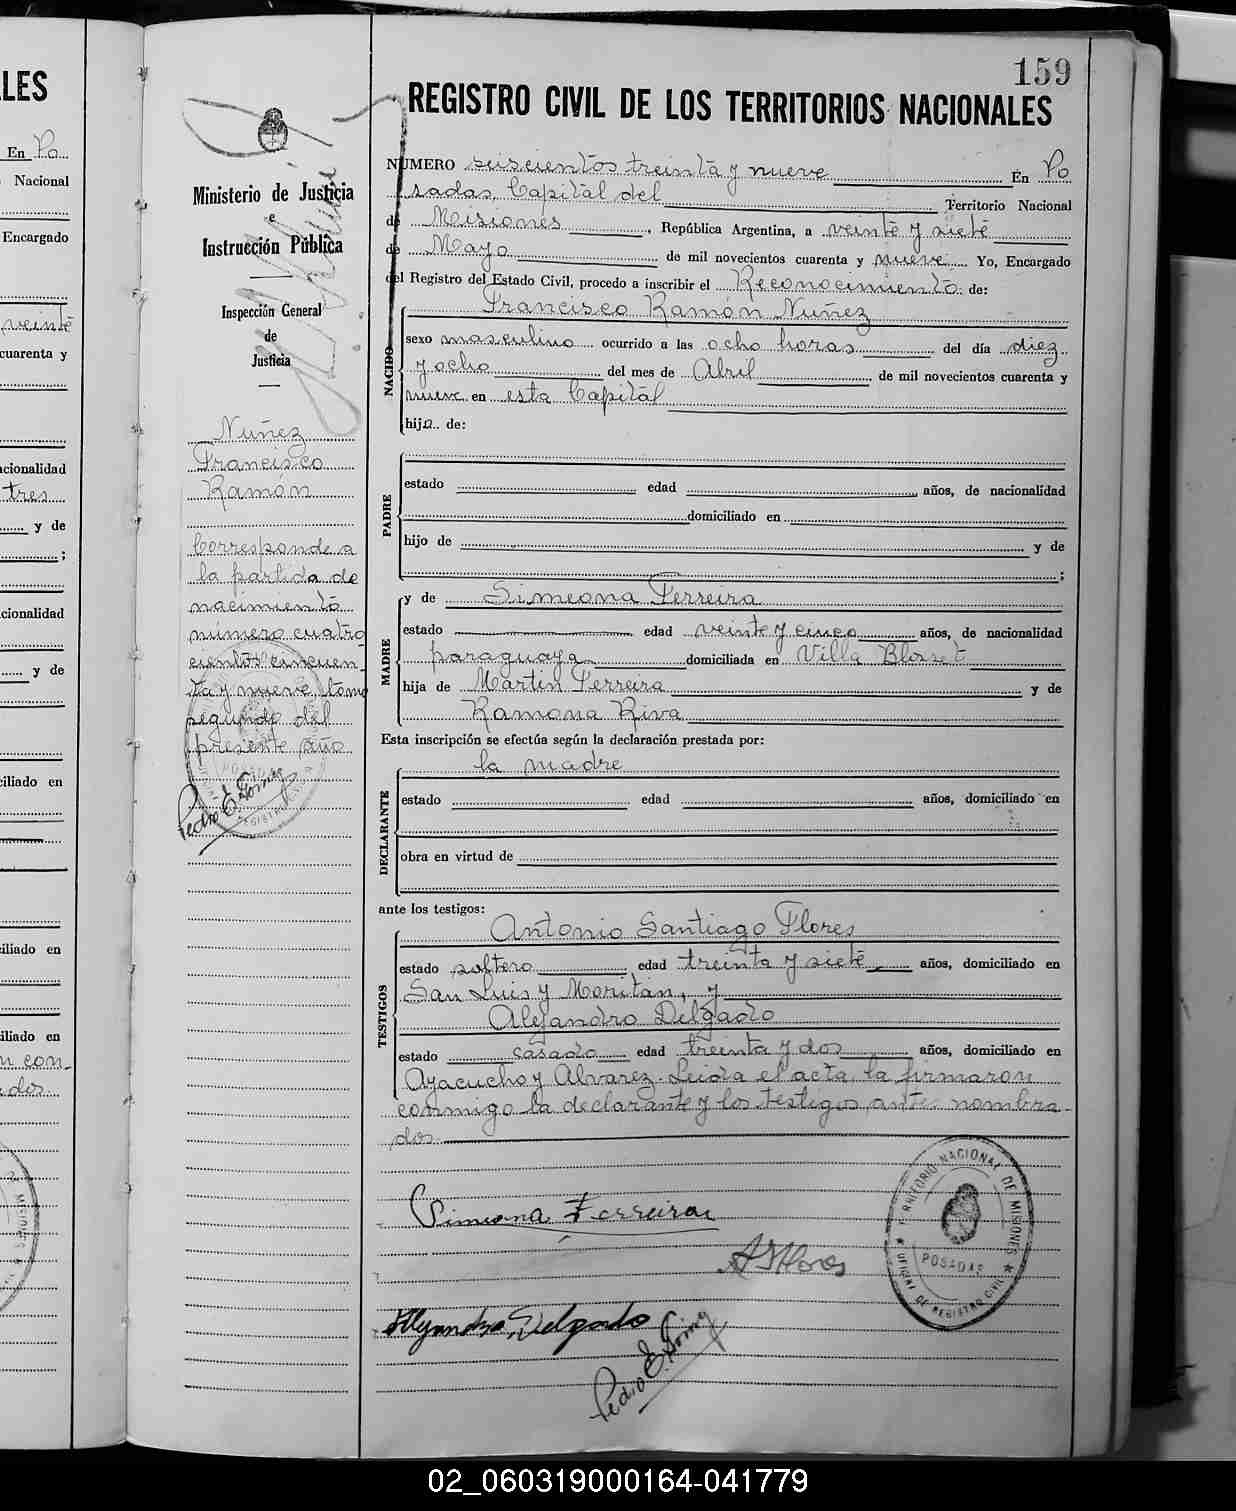 LES
En Po
Nacional
Encargado
veinte
cuarenta y
acionalidad
tres
y de
;
cionalidad
y de
ciliado en
iliado en
iliado en
n con-
dos.
159
REGISTRO CIVIL DE LOS TERRITORIOS NACIONALES
Ministerio de Justicia
e
Instrucción Pública
Inspección General
de
Justicia
Nuñez
Francisco
Ramón
Corresponde a
la partida de
nacimiento
número cuatro
cientos cincuen-
ta y nueve tomo
segundo del
presente año
POSADAS
NUMERO seiscientos treinta y nueve En Po
sadas, Capital del Territorio Nacional
de Misiones, República Argentina, a veinte y siete
de Mayo de mil novecientos cuarenta y nueve Yo, Encargado
del Registro del Estado Civil, procedo a inscribir el Reconocimiento de:
Francisco Ramón Nuñez
NACIDO
sexo masculino ocurrido a las ocho horas del día diez
y ocho del mes de Abril de mil novecientos cuarenta y
nueve en esta Capital
hijo de:
PADRE
estado edad años, de nacionalidad
domiciliado en
hijo de y de
;
MADRE
y de Simeona Ferreira
estado edad veinte y cinco años, de nacionalidad
paraguaya domiciliada en Villa Blosset
hija de Martin Ferreira y de
Ramona Riva
Esta inscripción se efectúa según la declaración prestada por:
la madre
DECLARANTE
estado edad años, domiciliado en
obra en virtud de
ante los testigos:
Antonio Santiago Flores
TESTIGOS
estado soltero edad treinta y siete años, domiciliado en
San Luis y Moritán, y
Alejandro Delgado
estado casado edad treinta y dos años, domiciliado en
Ayacucho y Alvarez. Leida el acta, la firmaron
conmigo la declarante y los testigos ante nombra-
dos.
Simeona Ferreira
A S Flores
Alejandro Delgado
Pedro E.
TERRITORIO NACIONAL DE MISIONES
POSADAS
OFICINA DE REGISTRO CIVIL
02_060319000164-041779